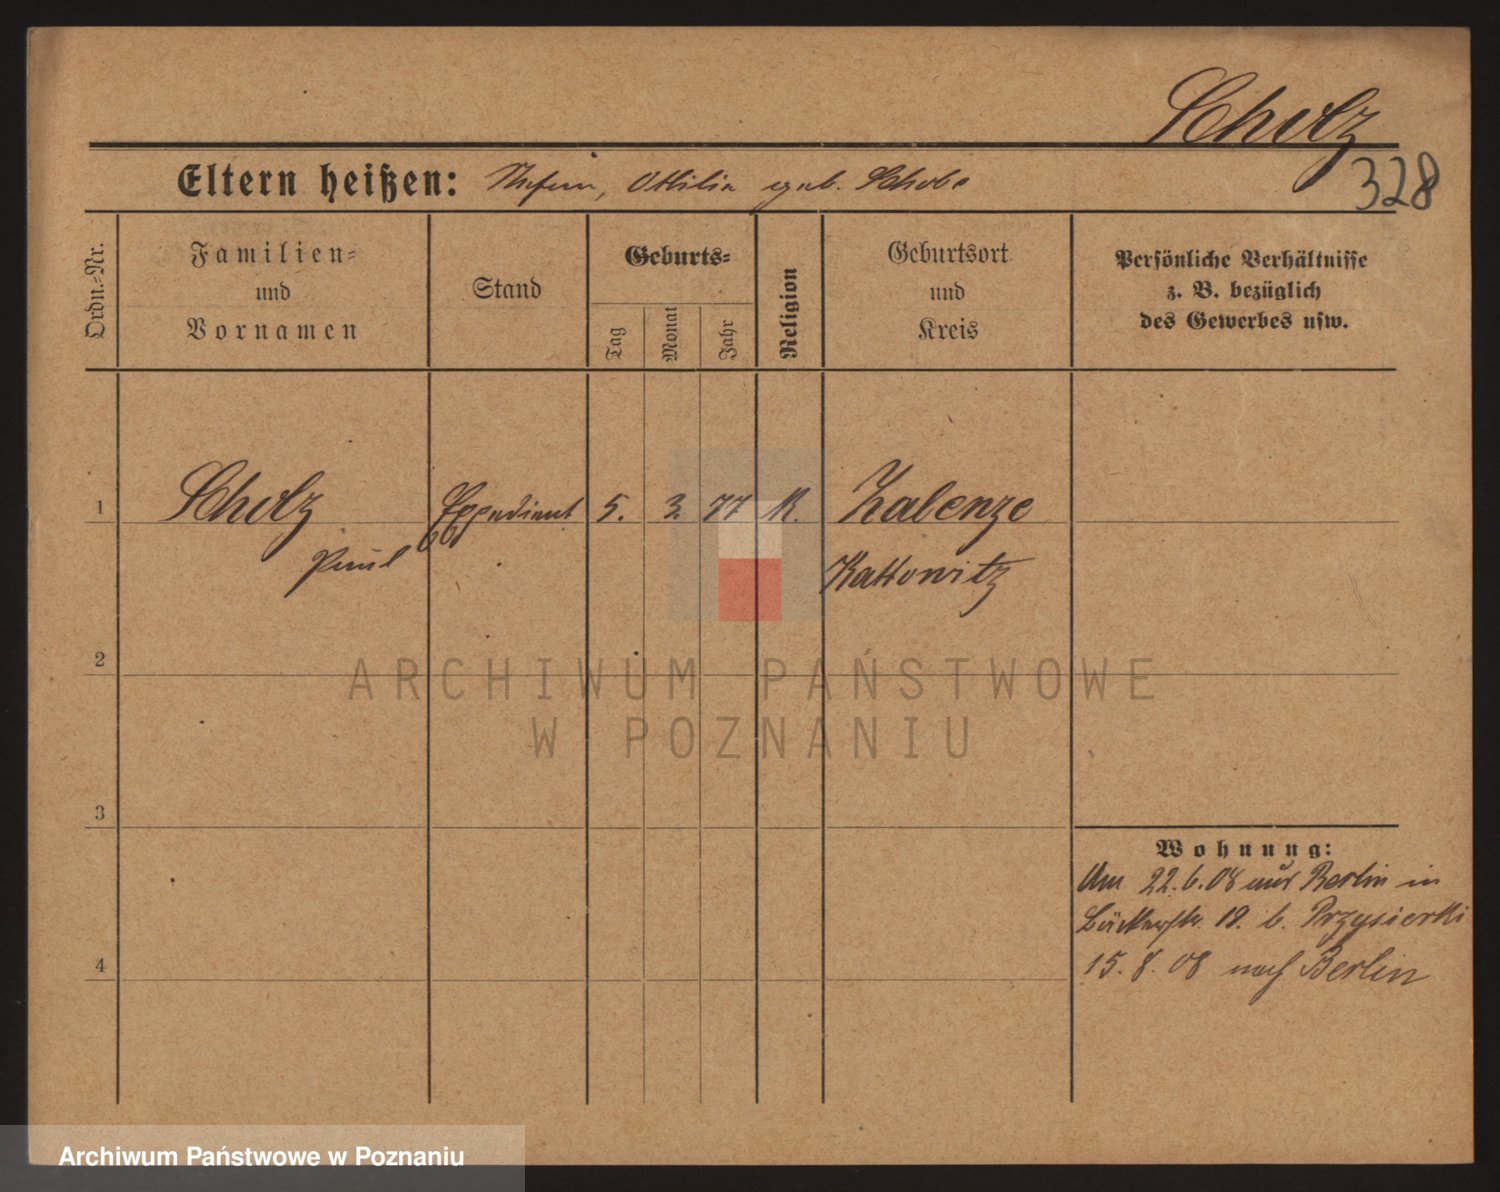 Scholz
328
Eltern heißen: Ottilia geb. Schobe
Ordn.-Nr.
Familien-
und
Vornamen
Stand
Geburts-
Tag
Monat
Jahr
Religion
Geburtsort
und
Kreis
Persönliche Verhältnisse
z. B. bezüglich
des Gewerbes usw.
1 Scholz Expedient 5. 3. 77 K. Zalenze
Paul Kattowitz
2
ARCHIWUM PAŃSTWOWE
W POZNANIU
3
Wohnung:
Am 22.6.08 aus Berlin in
Bäckerstr. 19. b. Przysierki
4
15.8.08 nach Berlin
Archiwum Państwowe w Poznaniu